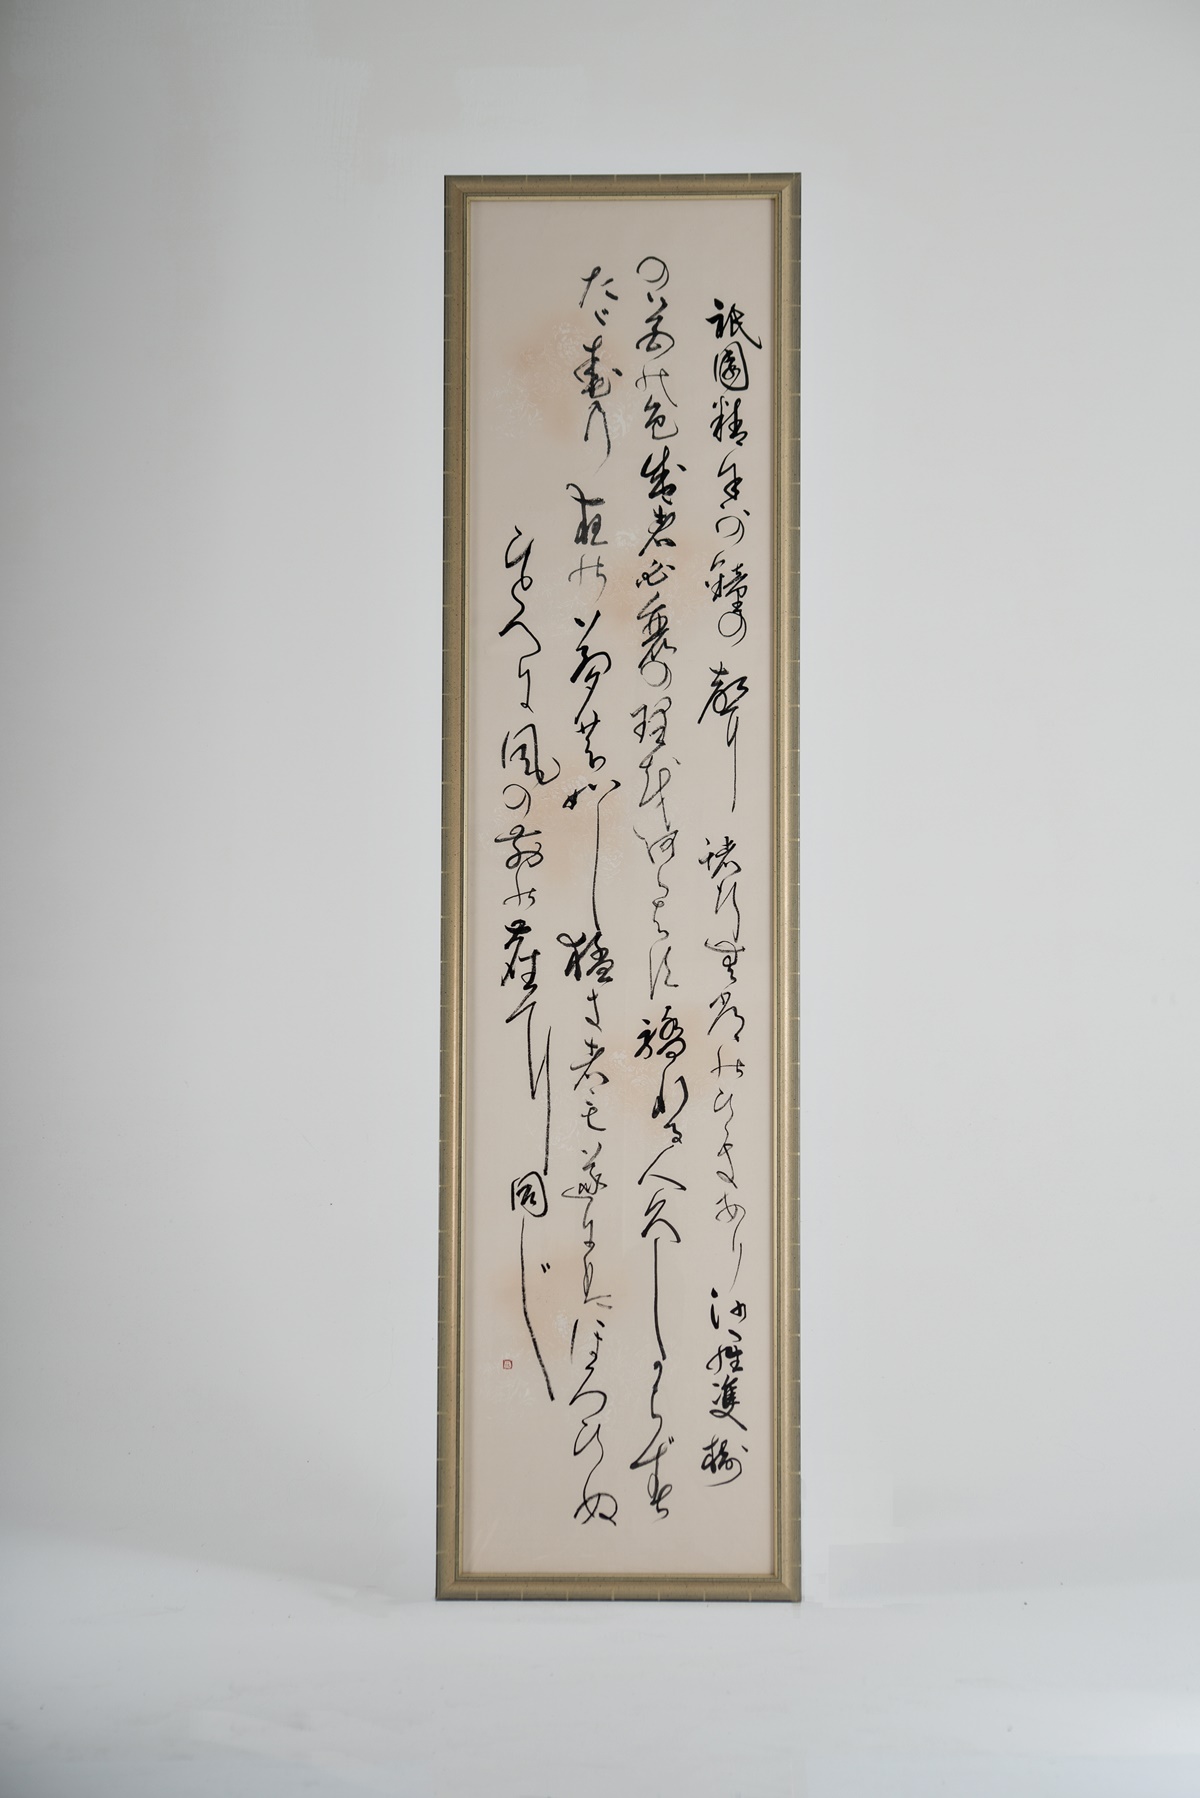 祇園精舎の鐘の聲諸行無常のひゞきあり沙羅雙樹
の花の色盛者必衰の理をあらはす驕れる人久しからず
たゞ春の夜の夢の如し猛き者も遂にはほろひぬ
ひとへに風の前の塵に同じ